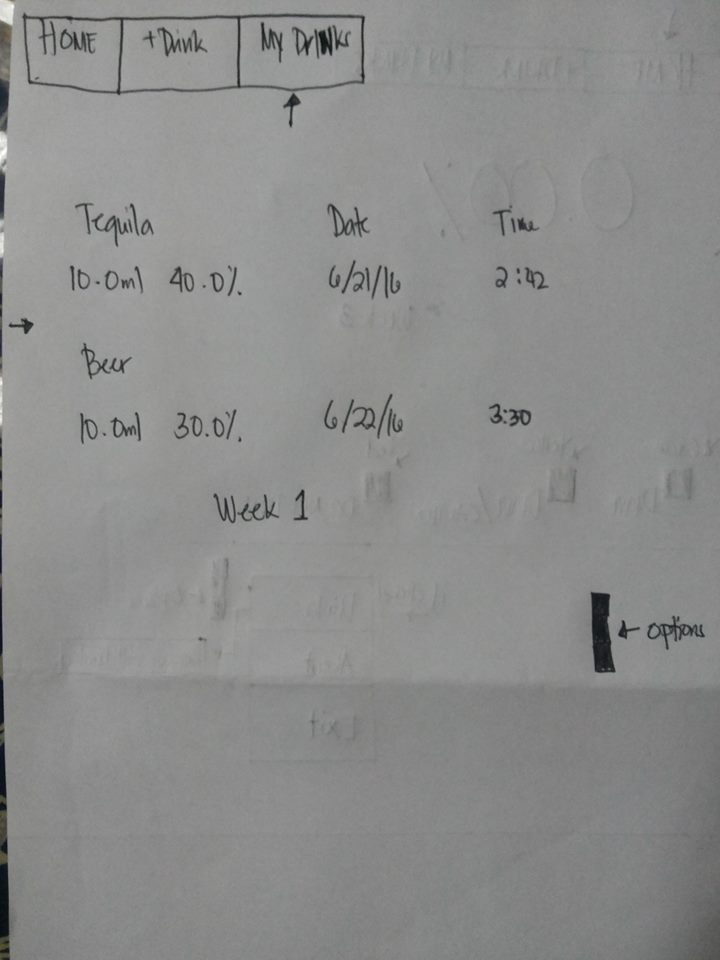 HOME +Drink My DrINks
Tequila Date Time
10.0ml 40.0% 6/21/16 2:42
Beer
10.0ml 30.0% 6/22/16 3:30
Week 1
options